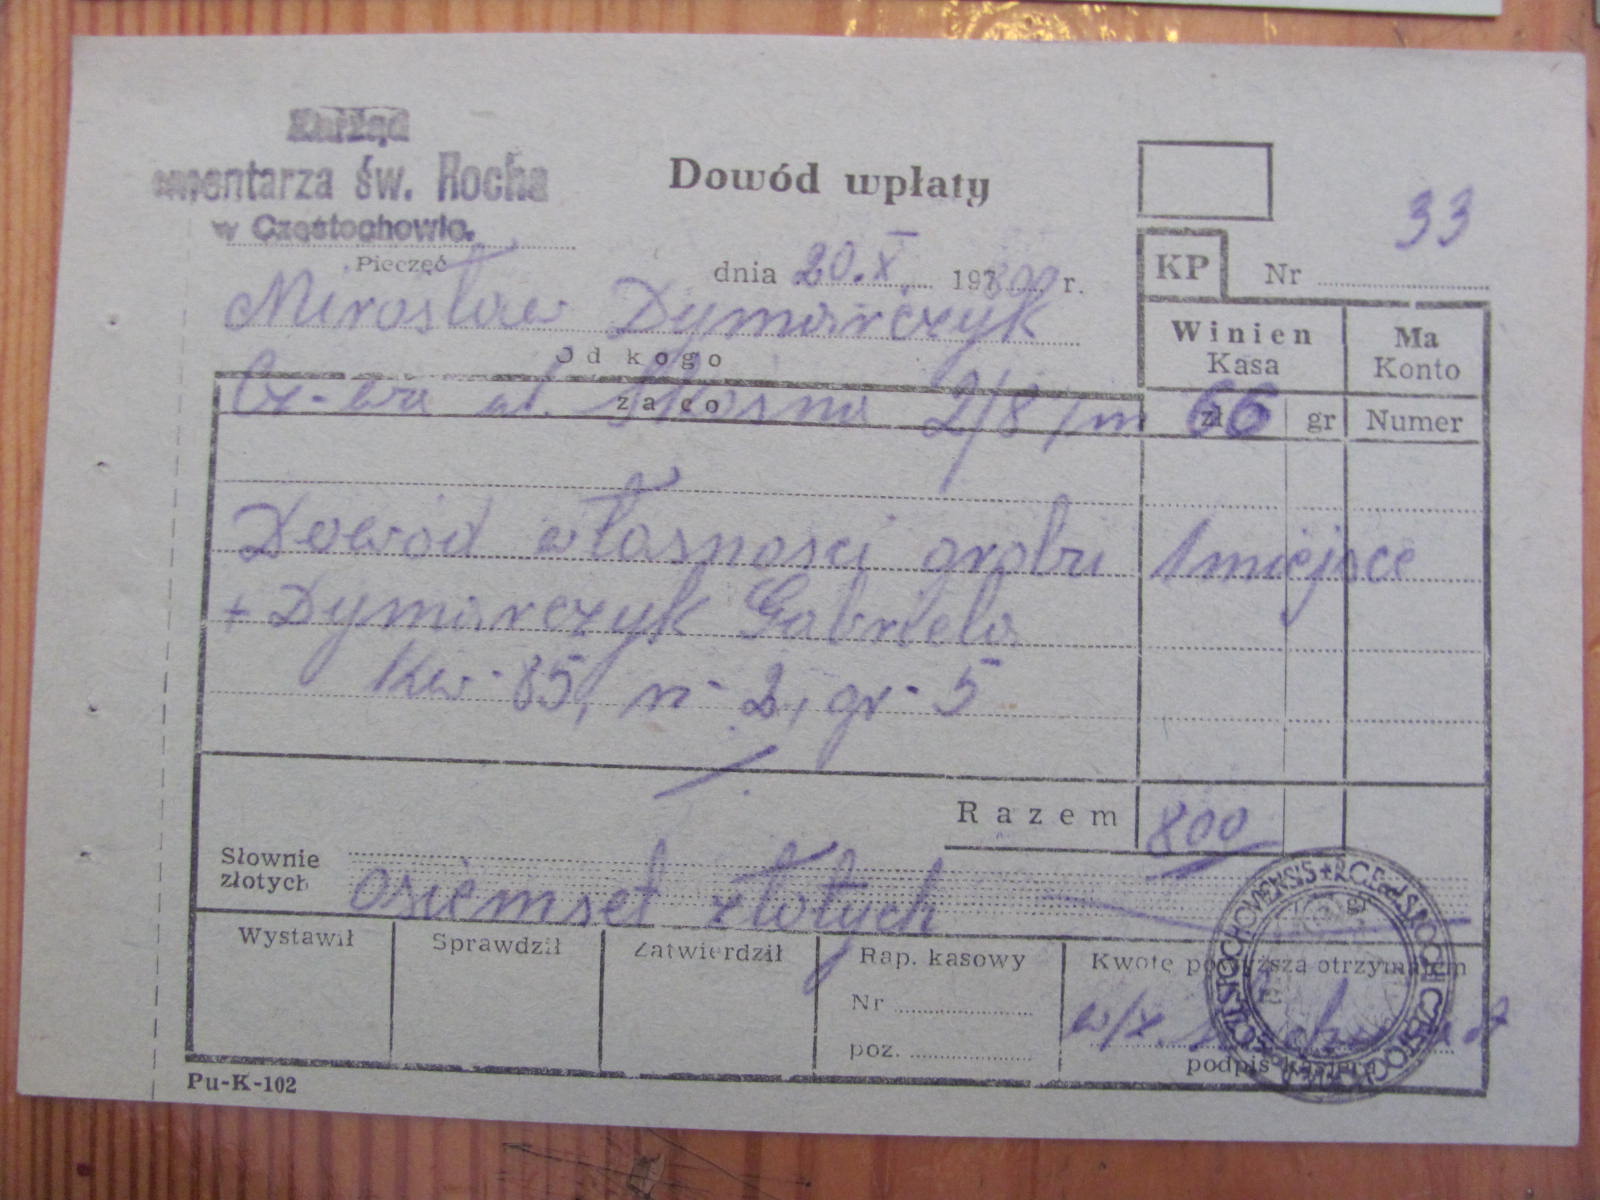 Zarząd
cmentarza św. Rocha
w Częstochowie.
Pieczęć
Dowód wpłaty
dnia 20.X. 19 r.
33
KP Nr
Mirosław Dymarczyk
Od kogo
Winien Kasa
Ma Konto
Cz-wa ul. 2/8 /m 66
za co
zł gr Numer
Dowód własności grobu 1 miejsce
+ Dymarczyk Gabriela
Kw- 85, n- 2, gr- 5
Razem 800
Słownie złotych osiemset złotych
Wystawił Sprawdził Zatwierdził Rap. kasowy Kwotę powyższą otrzymałem
Nr
poz.
w/z.
podpis kasjera
Pu-K-102